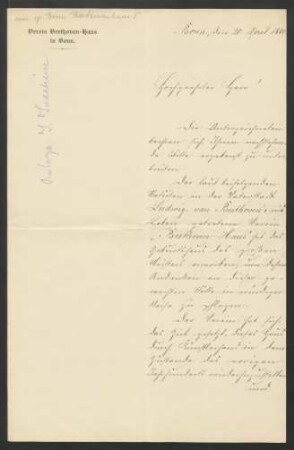 Verein Beethoven-Haus
in Bonn.
Bonn, den 20 April 18
Hochgeehrter Herr!
Die Unterzeichneten
sich Ihnen
Bitte ergebenst zu unter-
breiten
Der laut beifolgenden
Statuten in der Vaterstadt
Ludwig van Beethoven's ins
Leben getretene Verein
"Beethoven-Haus" hat das
Geburtshaus des großen
Meisters erworben, um dessen
Andenken an dieser ge-
weihten Stätte in würdiger
Weise zu pflegen.
Der Verein hat sich
das Ziel gesetzt, dieses Haus
durch in dem
Zustande des vorigen
Jahrhunderts wiederherzustellen
und